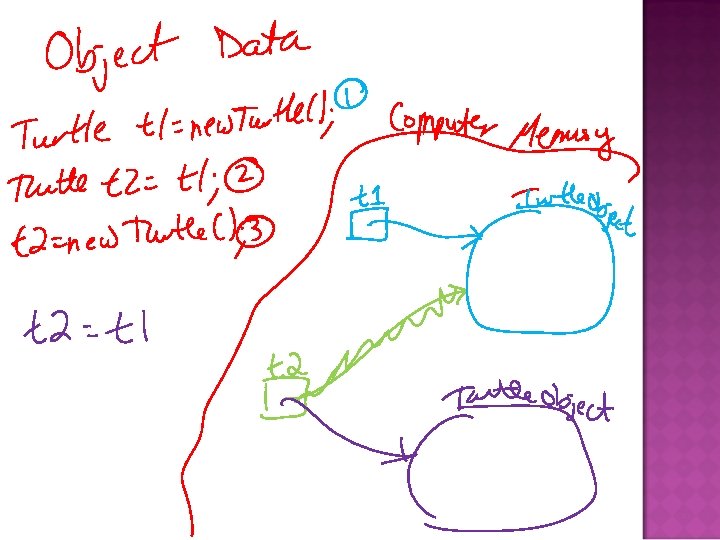 Object Data
Turtle t1=new Turtle(); ①
Turtle t2= t1; ②
t2=new Turtle(); ③
t2=t1
Computer Memory
t1
Turtle Object
t2
Turtle Object